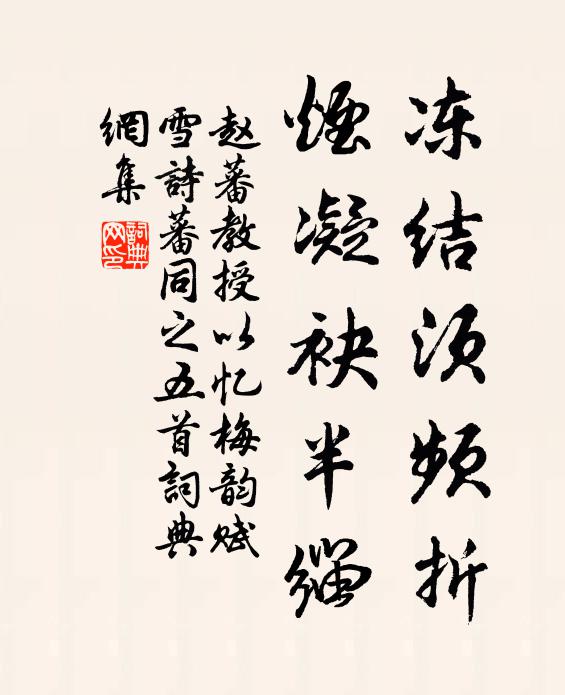 冻结须频折
煙凝袂半缁
赵蕃教授以忆梅韵赋
雪詩蕃同之五首詞典
網集
詞典
网印